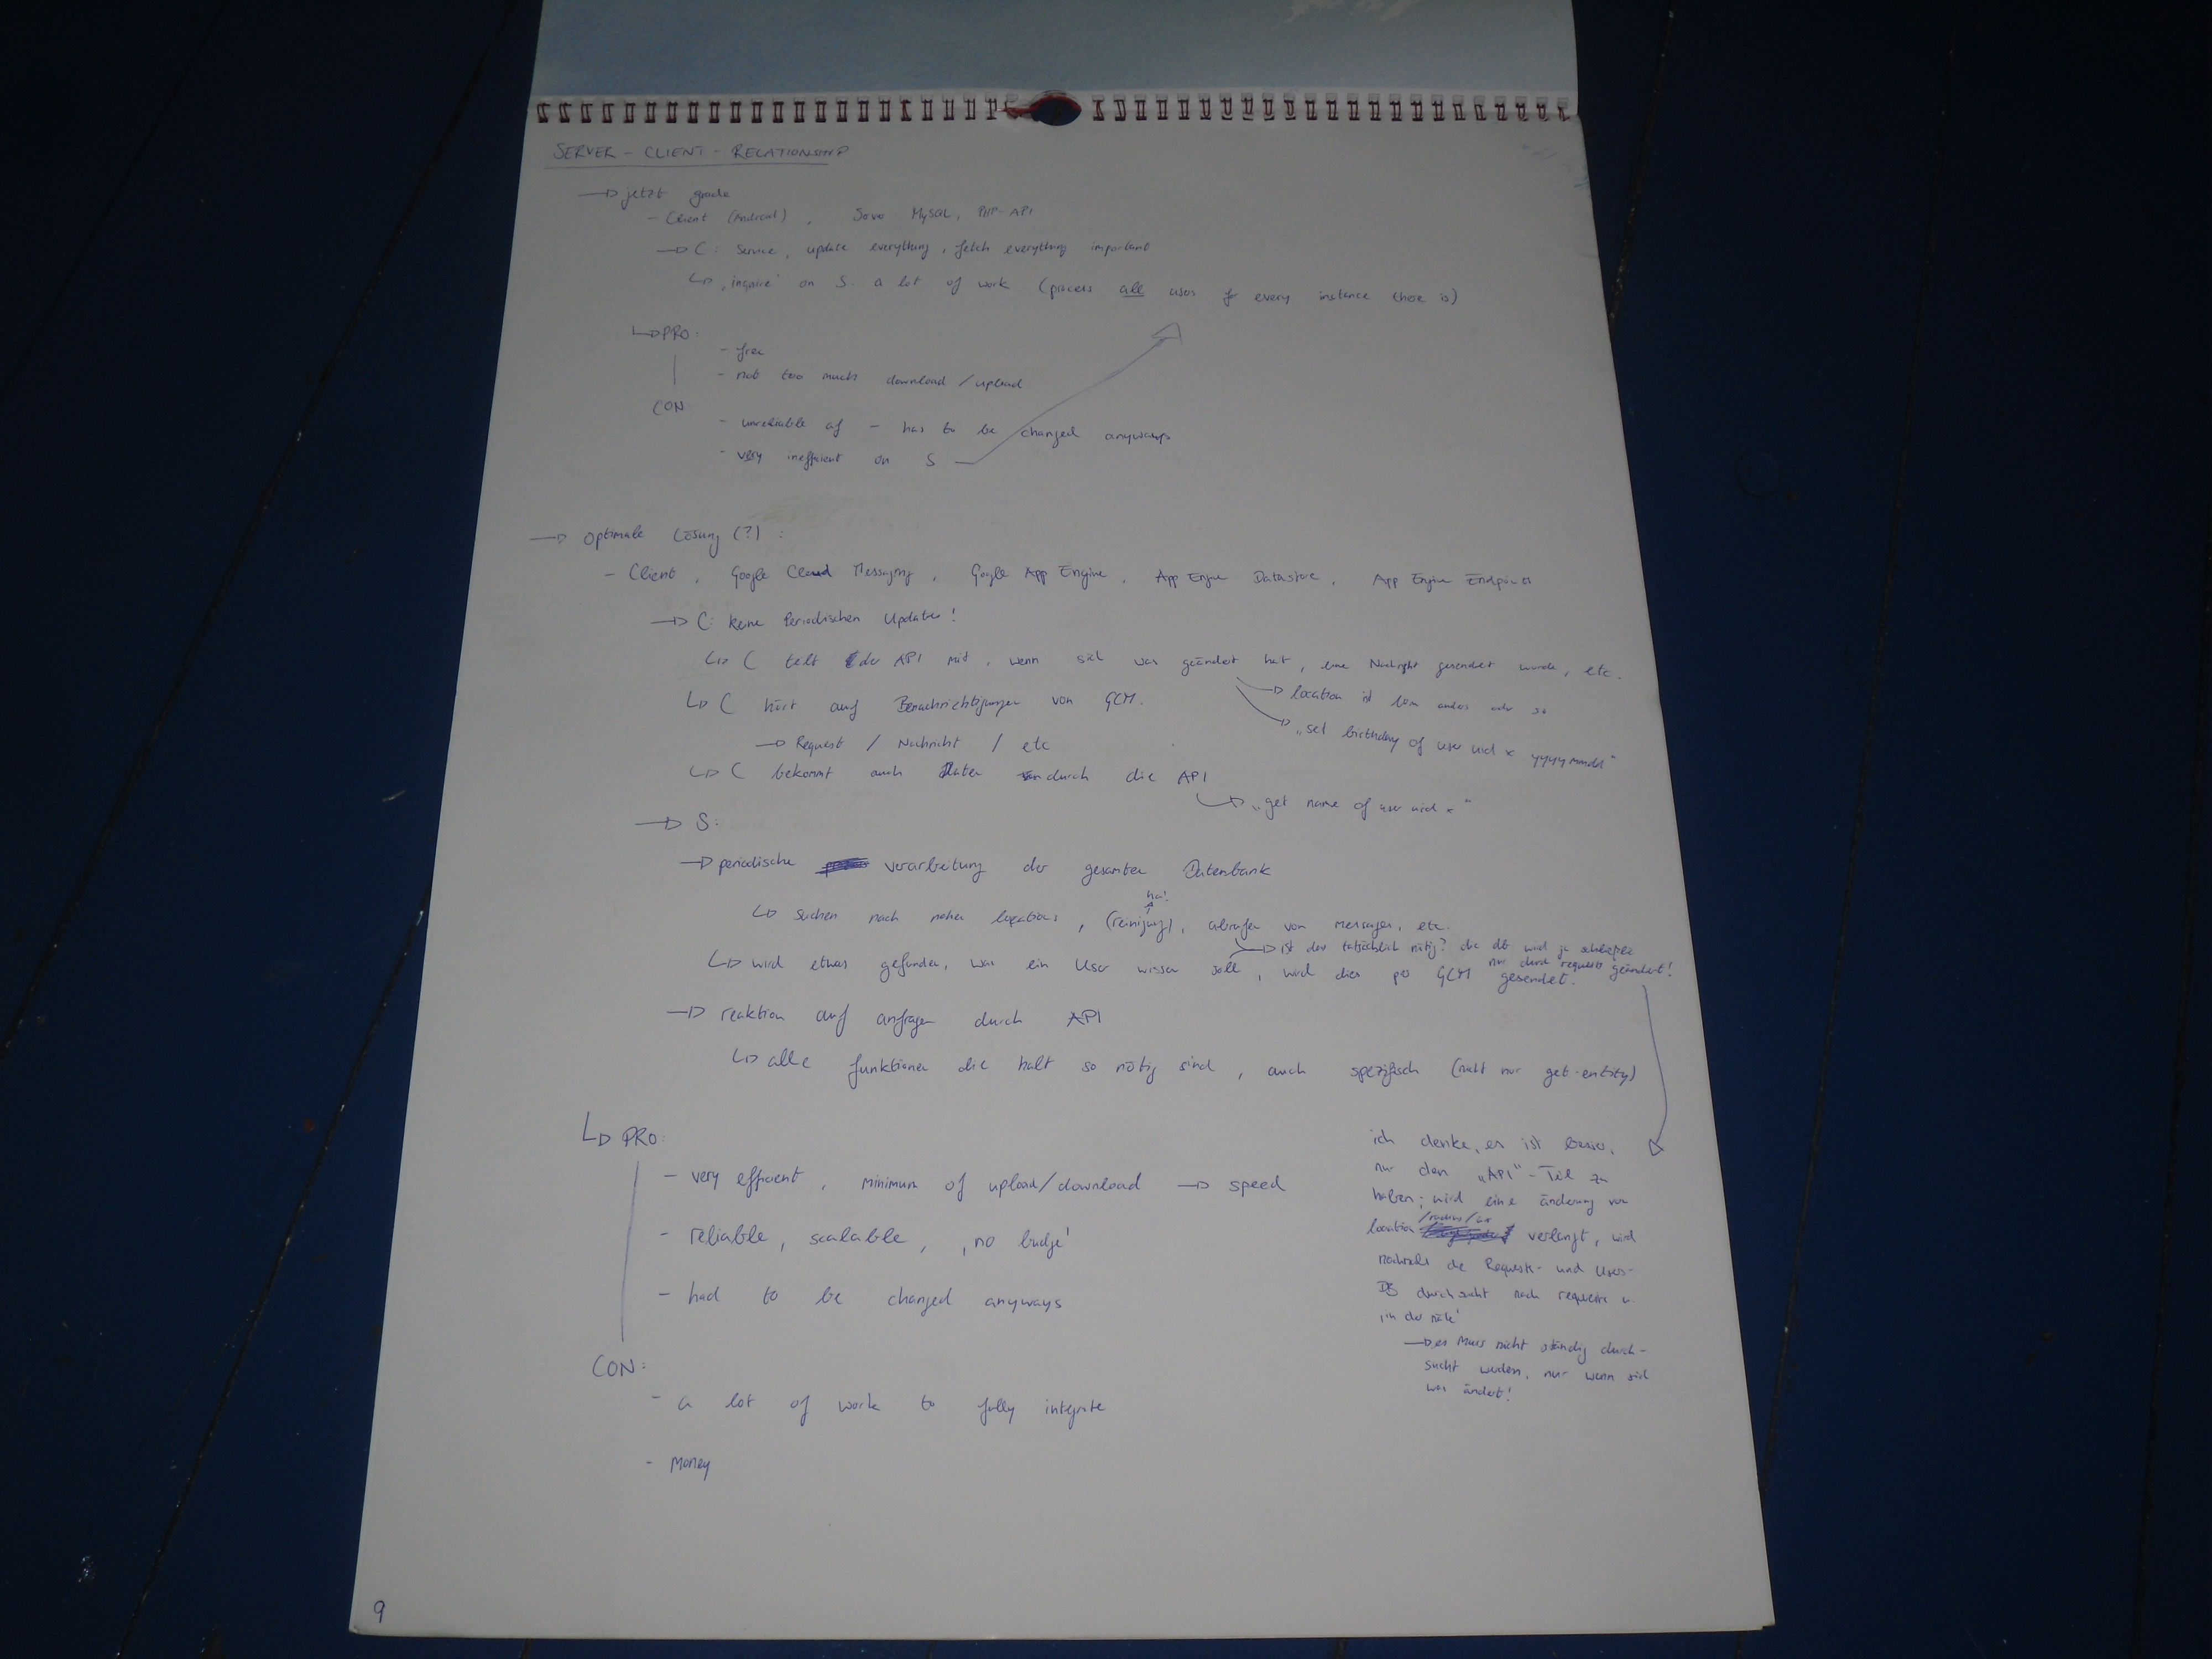 SERVER - CLIENT - RELATIONSHIP
jetzt grade
- Client (Android), MySQL, PHP-API
C: Service, update everything, fetch everything important
on S. a lot of work (process all users for every instance there is)
PRO:
- free
- not too much download / upload
CON
- unreliable af - has to be changed anyways
- very inefficient on S
Optimale Lösung (?) :
- Client, Google Cloud Messaging, Google App Engine, App Engine Datastore, App Engine Endpoints
C: keine Periodischen Updates!
C teilt der API mit, wenn sich was geändert hat, eine Nachricht gesendet wurde, etc.
location ist anders oder so
"set birthday of user uid x yyyymmdd"
C hört auf Benachrichtigungen von GCM.
Request / Nachricht / etc
C bekommt auch Daten durch die API
"get name of user uid x"
S:
periodische verarbeitung der gesamten Datenbank
ha!
suchen nach nahen locations, (reinigung), abrufen von messages, etc.
ist das tatsächlich nötig? die db wird ja schließlich
nur durch requests geändert!
wird etwas gefunden, was ein User wissen soll, wird dies per GCM gesendet.
reaktion auf anfragen durch API
alle funktionen die halt so nötig sind, auch spezifisch (nicht nur get-entity)
PRO:
- very efficient, minimum of upload/download → speed
- reliable, scalable, 'no budge'
- had to be changed anyways
CON:
- a lot of work to fully integrate
- Money
ich denke, es ist besser,
nur den "API"-Teil zu
haben; wird eine änderung von
location /radius/ verlangt, wird
die Requests- und Users-
DB durchsucht nach requests u.
'in der nähe'
es muss nicht ständig durch-
sucht werden, nur wenn sich
was ändert!
9